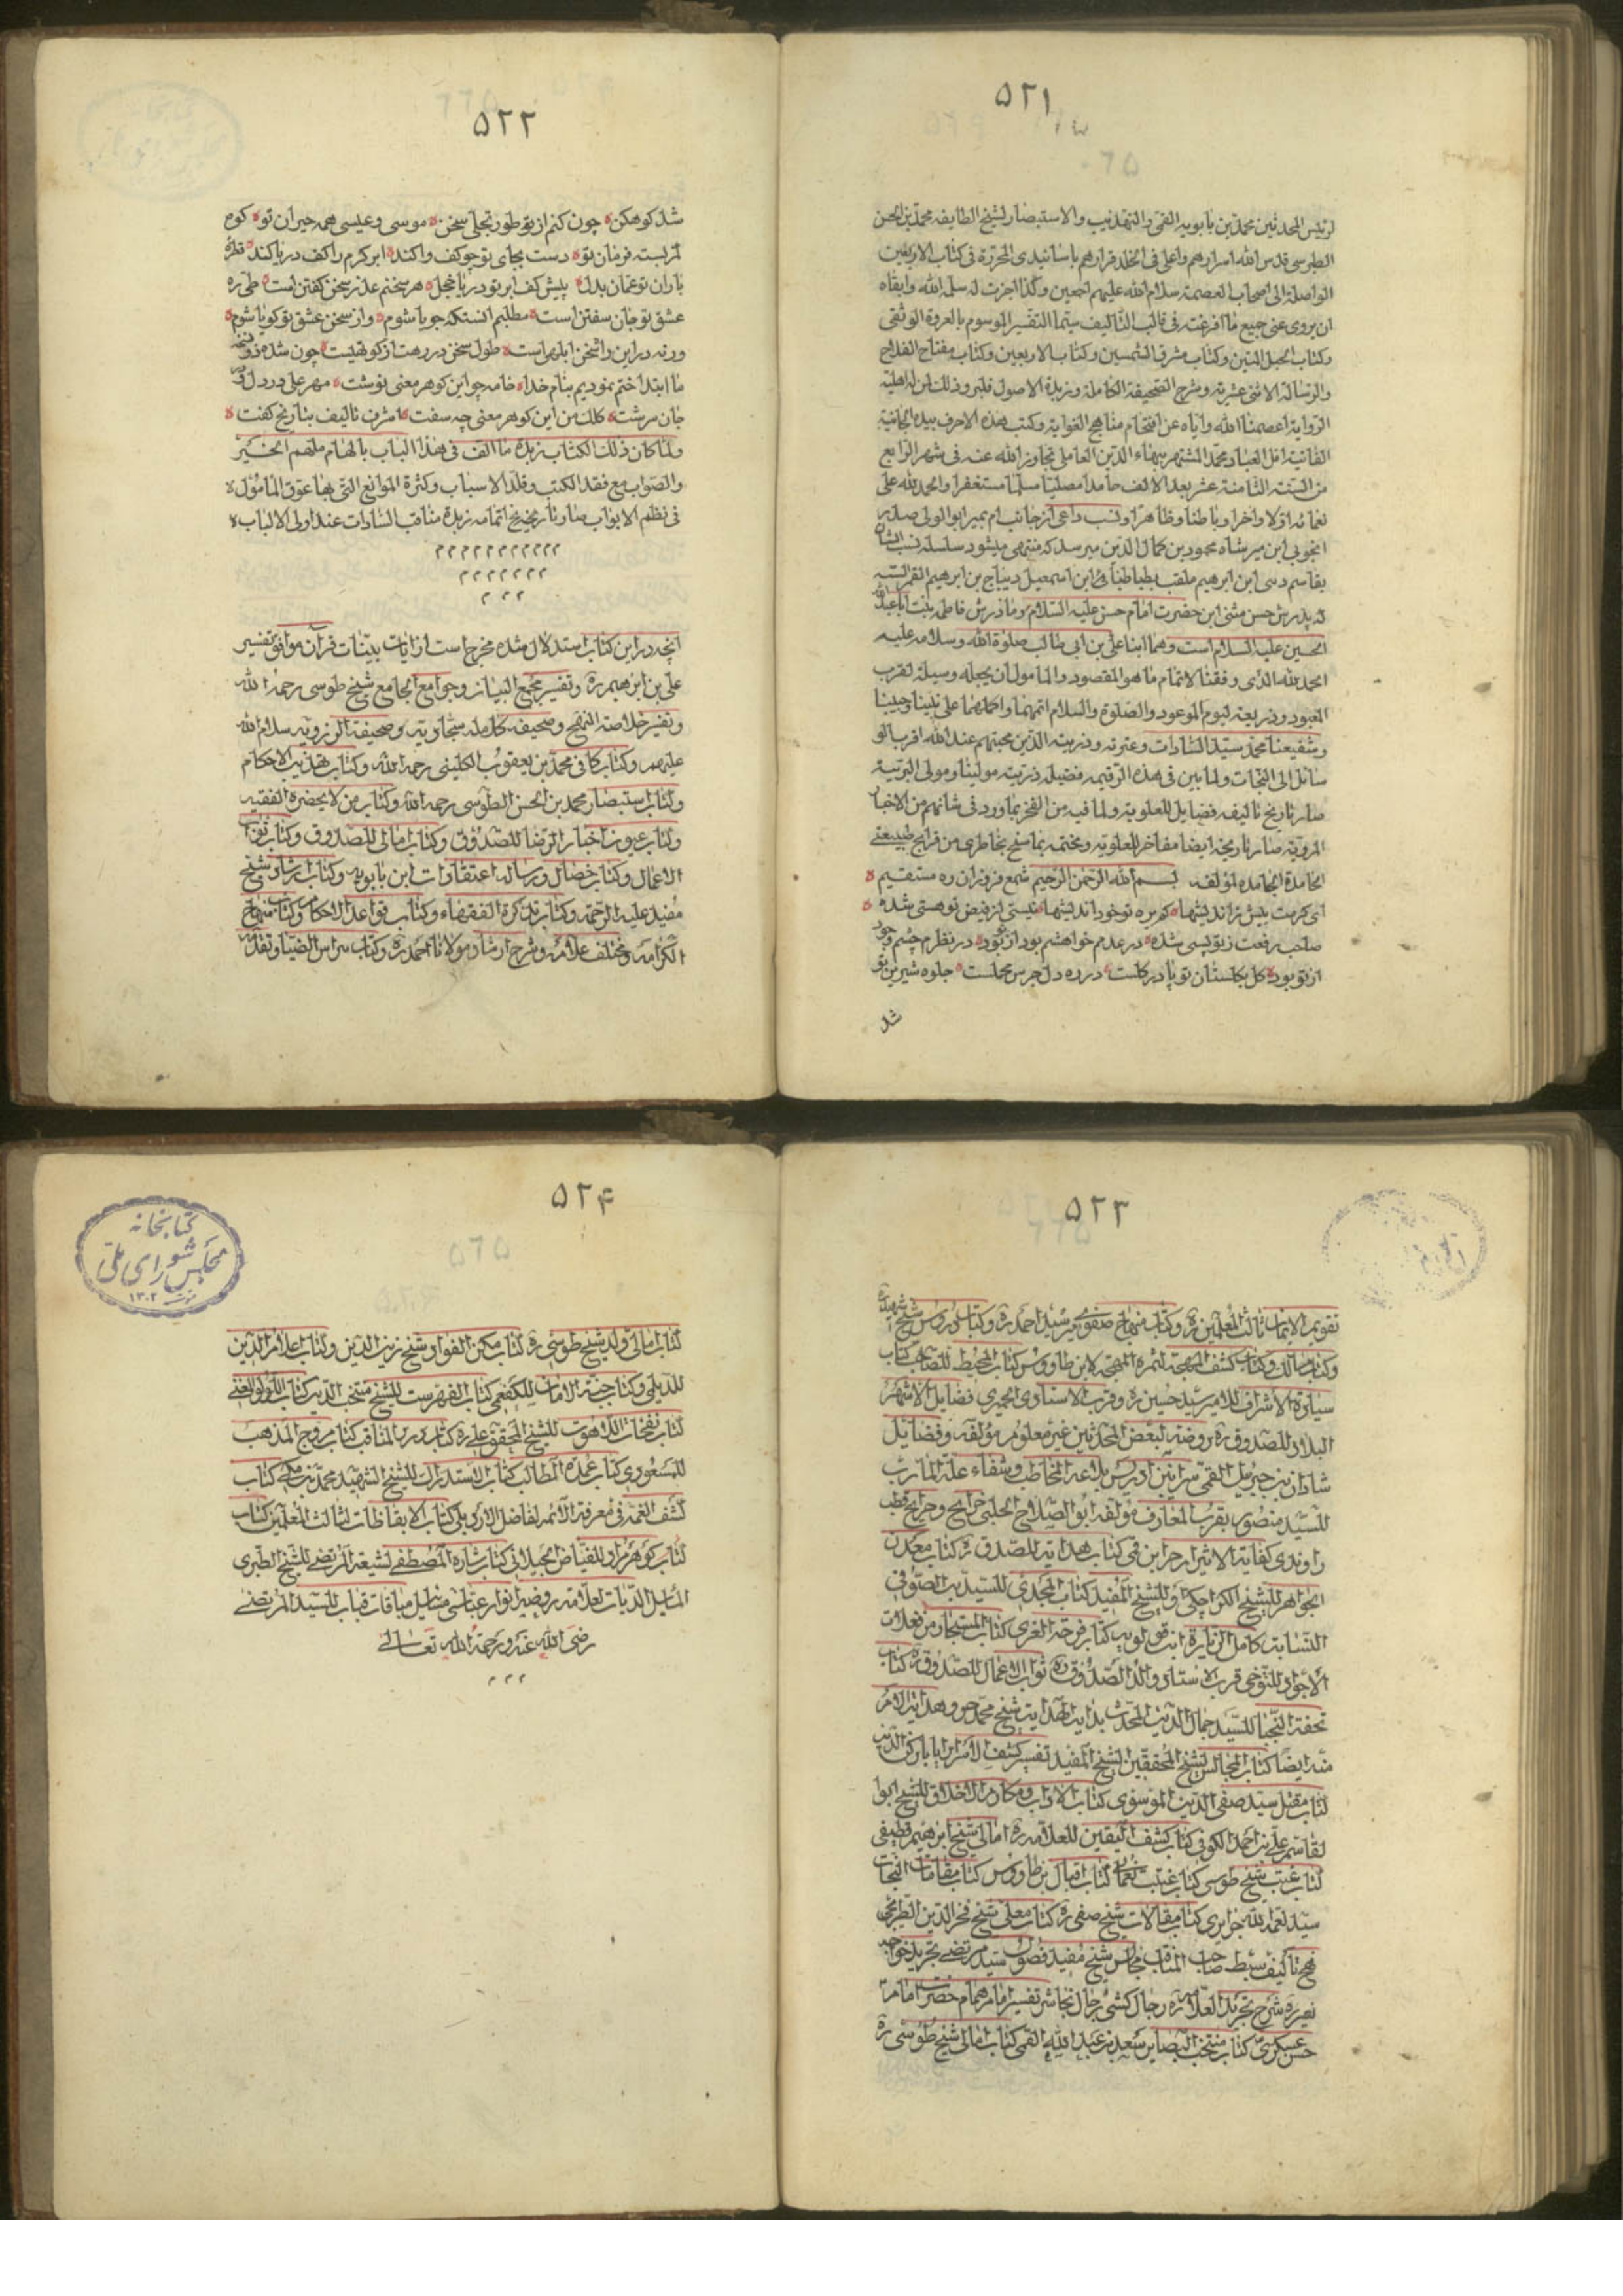 ۵۲۱
لرئیس المحدثین محمد بن بابویه القمی و التهذیب والاستبصار لشیخ الطایفه محمد بن الحسن
الطوسی قدس الله اسرارهم واعلی فی الخلد قرارهم باسانیدی المحررة فی کتاب الاربعین
الواصلة الی اصحاب العصمة سلام الله علیهم اجمعین وکذا اجزت له سلمه الله وابقاه
ان یروی عنی جمیع ما افرغته فی قالب التالیف سیما التفسیر الموسوم بالعروة الوثقی
وکتاب الحبل المتین وکتاب مشرق الشمسین وکتاب الاربعین وکتاب مفتاح الفلاح
والرسالة الاثنی عشریة وشرح الصحیفة الکاملة وزبدة الاصول فلیرو ذلک لمن له اهلیة
الروایة اعصمنا الله وایاه عن اقتحام مناهج الغوایة وکتب هذه الاحرف بیده الجانیة
الفانیة اقل العباد محمد المشتهر ببهاء الدین العاملی تجاوز الله عنه فی شهر الرابع
من السنة الثامنة عشر بعد الالف حامدا مصلیا مسلما مستغفرا والحمد لله علی
نعمائه اولا واخرا وباطنا وظاهرا ونسب داعی از جانب ام بمیر ابوالولی صدر
انجوبی ابن میر شاه محمود بن کمال الدین میرسد که منتهی میشود سلسله نسب ایشان
بقاسم رسی ابن ابرهیم ملقب بطباطبائی ابن اسمعیل دیباج بن ابرهیم الغمر البته
که پدرش حسن مثنی ابن حضرت امام حسن علیه السلام ومادرش فاطمه بنت اباعبدالله
الحسین علیه السلام است وهما ابنا علی بن ابی طالب صلوة الله وسلامه علیه
الحمد لله الذی وفقنا لاتمام ما هو المقصود والمامول ان یجعله وسیلة لقرب
المعبود وذریعة لیوم الموعود والصلوة والسلام اتمهما واکملهما علی نبینا وحبیبنا
وشفیعنا محمد سید السادات وعترته وذریته الذین محبتهم عند الله اقرب الو
سائل الی النجات ولما بین فی هذه الرقیمه فضیلة ذریته مولینا ومولی البریة
صار تاریخ تالیفه فضایل للعلویة ولما فیه من الفخر بما ورد فی شانهم من الاخبار
المرویة صار تاریخه ایضا مفاخر للعلویة ومختمه بما سنح بخاطری من قرایح طبیعتی
الحامدة الجامدة لمؤلفه بسم الله الرحمن الرحیم شمع فروزان ره مستقیم
ای کرمت بیش ز اندیشها کم بره تو خود اندیشها نیستی از فیض تو هستی شده
صاحب رفعت ز تو پستی شده در عدم خواهشم بود از تو بود در نظرم چشم وجود
از تو بود کل بکلستان تو پا در کلست در ره دل جرس محملست جلوه شیرین تو
شد
۵۲۲
شد کوهکن چون کنم از تو طور تجلی سخن موسی و عیسی همه حیران تو کوه
کمر بسته فرمان تو دست بجای تو چو کف واکند ابر کرم را کف دریا کند قطره
باران تو عمان بدل پیش کف ابر تو دریا خجل هر سخنم عذر سخن کفتن است طی ره
عشق تو جان سفتن است مطلبم انستکه جویا شوم واز سخن عشق تو کویا شوم
ورنه در این واشخن ابلهی است طول سخن در رهت از کوتهیست چون شده
ما ابتدا ختم نمودیم بنام خدا خامه چو این کوهر معنی نوشت مهر علی در دل و
جان سرشت کلک من این کوهر معنی چه سفت اشرف تالیف بتاریخ کفت
ولما کان ذلک الکتاب زبدة ما الف فی هذا الباب بالهام ملهم الخیر
والصواب مع فقد الکتب وقلة الاسباب وکثرة الموانع التی بها عوق المامول
فی نظم الابواب صار تاریخ اتمامه زبدة مناقب السادات عند اولی الالباب
انچه در این کتاب استدلال شده مخرج است از ایات بینات قران موافق تفسیر
علی بن ابرهیم ره وتفسیر مجمع البیان وجوامع الجامع شیخ طوسی رحمه الله
وتفسیر خلاصة المنهج وصحیفه کامله سجادیه وصحیفة الرضویه سلام الله
علیهم وکتاب کافی محمد بن یعقوب الکلینی رحمه الله وکتاب تهذیب الاحکام
وکتاب استبصار محمد بن الحسن الطوسی رحمه الله وکتاب من لا یحضره الفقیه
وکتاب عیون اخبار الرضا للصدوق وکتاب امالی للصدوق وکتاب ثواب
الاعمال وکتاب خصال ورساله اعتقادات ابن بابویه وکتاب ارشاد شیخ
مفید علیه الرحمة وکتاب تذکرة الفقهاء وکتاب قواعد الاحکام وکتاب منهاج
الکرامه ومختلف علامه وشرح ارشاد مولانا احمد ره وکتاب نبراس الضیا وتقدمه
۵۲۳
تقویم الایمان ثالث المعلمین ره وکتاب منهاج صفوی میر سید احمد ره وکتاب دروس شیخ شهید
وکتاب مسالک وکتاب کشف المهجه لثمرة المهجه لابن طاووس کتاب المحیط للصاحب کتاب
سیادة الاشراف للامیر سید حسین ره وقرب الاسناد حمیری فضایل الاشهر
البلاد للصدوق ره روضه لبعض المحدثین غیر معلوم مؤلفه وفضایل
شاذان بن جبرئیل القمی سرائر ابن ادریس بلاغه المخاطب وشفاء علة المارب
للسید منصور تقرب المعارف مؤلفه ابو الصلاح الحلبی خرایج وجرایح قطب
راوندی کفایة الاثر ابن قمی کتاب هدایه للصدوق ره کتاب معدن
الجواهر للشیخ الکراجکی وللشیخ المفید کتاب المجدی للسید الصوفی
النسابه کامل الزیارة ابن قولویه کتاب فرحة الغری کتاب المستجاد من فعلات
الاجواد للتنوخی قرب الاسناد والد الصدوق ره ثواب الاعمال للصدوق ره کتاب
تحفة النجبا للسید جمال الدین المحدث بدایة الهدایه شیخ محمد حر وهدایة الامة
منه ایضا کتاب المجالس لشیخ المحققین الشیخ المفید تفسیر کشف الاسرار بابا رکن الدین
کتاب مقتل سید صفی الدین الموسوی کتاب الاداب ومکارم الاخلاق للشیخ ابوا
لقاسم علی بن احمد الکوفی کتاب کشف الیقین للعلامه ره امالی شیخ ابرهیم قطیفی
کتاب غیبت شیخ طوسی کتاب غیبت نعمانی کتاب اقبال بن طاووس کتاب مقامات النجات
سید نعمة الله جزایری کتاب مقالات شیخ صفی ره کتاب معلی شیخ فخر الدین الطریحی
نهج تالیف سبط صاحب المناقب مجالس شیخ مفید فصول سید مرتضی تجرید خواجه
نصیر ره شرح تجرید العلامه ره رجال کشی رجال نجاشی تفسیر امام همام حضرت امام
حسن عسکری کتاب منتخب البصایر سعد بن عبد الله القمی کتاب امالی شیخ طوسی ره
۵۲۴
کتابخانه
مجلس شورای ملی
۱۳۰۲
کتاب امالی ولد شیخ طوسی ره کتاب مسکن الفواد شیخ زین الدین وکتاب اعلام الدین
للدیلمی وکتاب جنة الامان للکفعمی کتاب الفهرست للشیخ منتخب الدین کتاب اللولو
کتاب نفحات اللاهوت للشیخ المحقق علی ره کتاب درر المناقب کتاب مروج المذهب
للمسعودی کتاب عمدة المطالب کتاب الاستدراک للشیخ الشهید محمد بن مکی کتاب
کشف الغمه فی معرفة الائمه لفاضل الاردبیلی کتاب الایقاظات لثالث المعلمین کتاب
کتاب کوهر مراد للفیاض لاهیجی کتاب بشارة المصطفی لشیعة المرتضی للشیخ الطبری
المسایل الدیات لعلامه روضه انوار عباسی للسید المرتضی
رضی الله عنه ورحمة الله تعالی